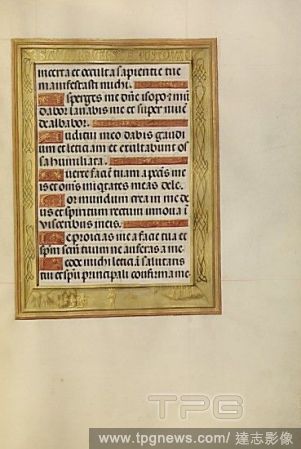 incerta et occulta sapientie tue
manifestasti michi.
Asperges me dñe isopo et mũ
dabor lavabis me et super nive
dealbabor.
Auditui meo dabis gaudi
um et leticiam et exultabunt os
sa humiliata.
Averte faciem tuam a peccatis me
is et omnis iniquitates meas dele.
Cor mundum crea in me de
us et spiritum rectum innova i
visceribus meis.
Ne proicias me a facie tua et
spm sctm tuum ne auferas a me
Redde michi leticiã salutaris
tui et spũ principali confirma me
TPG
www.tpgnews.com/ 達志影像